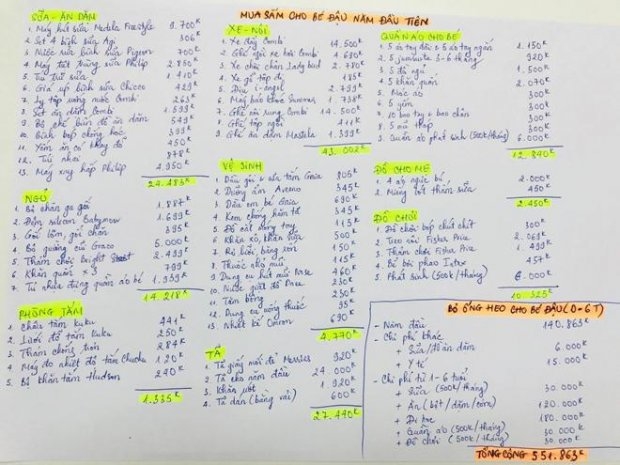 MUA SẮM CHO BÉ ĐẬU NĂM ĐẦU TIÊN
SỮA - ĂN DẶM
1. Máy hút sữa Medela Freestyle 9.700K
2. Set 4 bình sữa Agi 306K
3. Nước rửa bình sữa Pigeon 700K
4. Máy tiệt trùng sữa Philip 2.850K
5. Túi trữ sữa 1.410K
6. Giá úp bình sữa Chicco 429K
7. Ly tập uống nước Combi 263K
8. Set ăn dặm Combi 1.599K
9. Bộ ghế đồ ăn dặm 549K
10. Bình bóp chống hóc 399K
11. Yếm ăn có máng đỡ 450K
12. Túi nhai 878K
13. Máy xay hấp Philip 4.950K
24.483K
NGỦ
1. Bộ chăn ga gối 1.887K
2. Đệm silicon Babynow 1.699K
3. Gối lõm, gối chặn 395K
4. Bộ quây cũi Graco 5.000K
5. Thảm chơi bright Start 2.499K
6. Khăn quấn x 3 799K
7. Tủ nhựa đựng quần áo bé 1.939K
14.218K
PHÒNG TẮM
1. Chậu tắm kuku 441K
2. Lưới đỡ tắm kuku 250K
3. Thảm chống trơn 284K
4. Máy đo nhiệt độ tắm Chuchu 120K
5. Bộ khăn tắm Hudson 240K
1.335K
XE - NÔI
1. Xe đẩy Combi 14.500K
2. Ghế ngồi xe hơi Combi 4.680K
3. Xe chòi chân Ladybird 2.780K
4. Xe gỗ tập đi 185K
5. Địu i-angel 2.799K
6. Máy báo khóc Summer 1.738K
7. Ghế ăn rung Combi 14.500K
8. Ghế tập ngồi 411K
9. Ghế ăn dặm Mastela 1.399K
43.002K
VỆ SINH
1. Dầu gội & sữa tắm Gaia 805K
2. Dưỡng ẩm Aveno 345K
3. Dầu em bé Gaia 690K
4. Kem chống hăm tã 345K
5. Đồ cắt móng tay 115K
6. Khăn xô, khăn sữa 500K
7. Rơ lưỡi, bông rơn 150K
8. Thuốc nhỏ mũi 115K
9. Dụng cụ hút mũi Nose 460K
10. Nước giặt đồ Dnee 230K
11. Tăm bông 230K
12. Dụng cụ uống thuốc 95K
13. Nhiệt kế Omron 690K
4.770K
TÃ
1. Tã giấy mới đẻ Merries 920K
2. Tã cho năm đầu 24.000K
3. Khăn ướt 1.920K
4. Tã dán (bằng vải) 600K
27.440K
QUẦN ÁO CHO BÉ
1. 5 áo tay dài & 5 áo tay ngắn 2.150K
2. 5 jumsuite 3-6 tháng 920K
3. 5 đồ ngủ 1.500K
4. 5 khăn quấn 2.070K
5. Mắc áo 300K
6. 5 yếm 300K
7. 10 bao tay & bao chân 300K
8. 5 mũ thóp 300K
9. Quần áo phát sinh (500k/tháng) 6.000K
12.840K
ĐỒ CHO MẸ
1. 4 áo ngực bú 2.000K
2. Miếng lót thấm sữa 450K
2.450K
ĐỒ CHƠI
1. Đồ chơi bóp chút chít 300K
2. Treo cũi Fisher Price 2.069K
3. Thảm chơi Fisher Price 1.499K
4. Bể bơi phao Intex 457K
5. Phát sinh (500k/tháng) 6.000K
10.325K
BỎ ỐNG HEO CHO BÉ ĐẬU (0-6T)
- Năm đầu 140.863K
- Chi phí khác
+ Sữa/đồ ăn dặm 6.000K
+ Y tế 15.000K
- Chi phí từ 1-6 tuổi
+ Sữa (500k/tháng) 30.000K
+ Ăn (bột/dặm/cơm) 120.000K
+ Đi học 180.000K
+ Quần áo (500k/tháng) 30.000K
+ Đồ chơi (500k/tháng) 30.000K
TỔNG CỘNG 551.863K